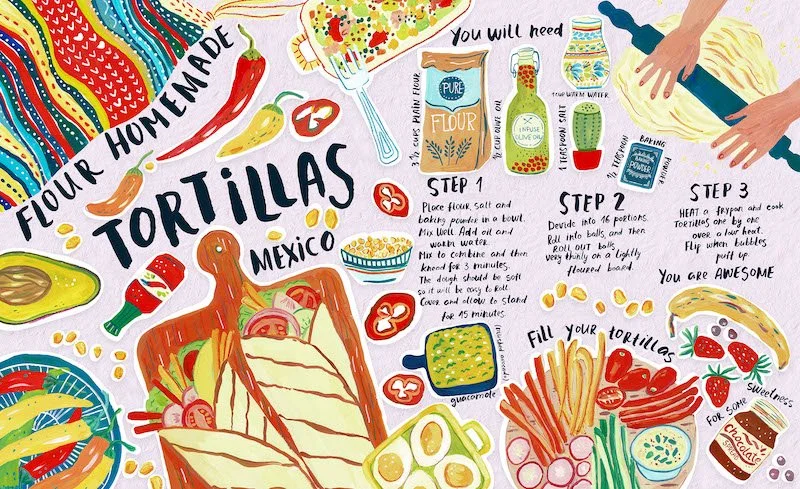 FLOUR HOMEMADE
TORTILLAS
MEXICO
You will need
3 1/2 CUPS PLAIN FLOUR
PURE
FLOUR
1/2 CUP OLIVE OIL
INFUSE
OLIVE OIL
1 CUP WARM WATER
1 TEASPOON SALT
1/2 TEASPOON
BAKING
POWDER
BAKING
POWDER
STEP 1
Place flour, salt and
baking powder in a bowl.
Mix well. Add oil and
warm water.
Mix to combine and then
knead for 3 minutes.
The dough should be soft
so it will be easy to Roll.
Cover and allow to stand
for 45 minutes
STEP 2
Devide into 16 portions.
Roll into balls, and then
ROLL OUT balls
very thinly on a lightly
floured board.
STEP 3
HEAT a frypan and cook
Tortillas one by one
over a low heat.
Flip when bubbles
puff up.
You are AWESOME
Fill your tortillas
guacamole
FOR SOME
sweetness
Chocolate